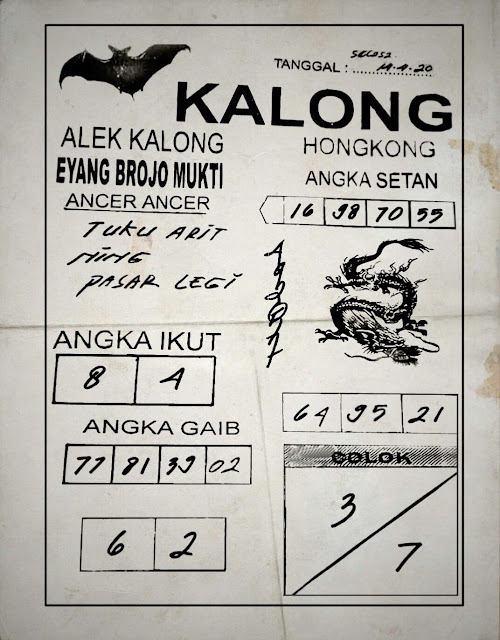 Selasa
TANGGAL : 14-4-20
KALONG
ALEK KALONG
HONGKONG
EYANG BROJO MUKTI
ANGKA SETAN
ANCER ANCER
16 98 70 55
TUKU ARIT
NING
PASAR LEGI
ANGKA IKUT
8 4
64 95 21
ANGKA GAIB
COLOK
77 81 39 02
3
7
6 2